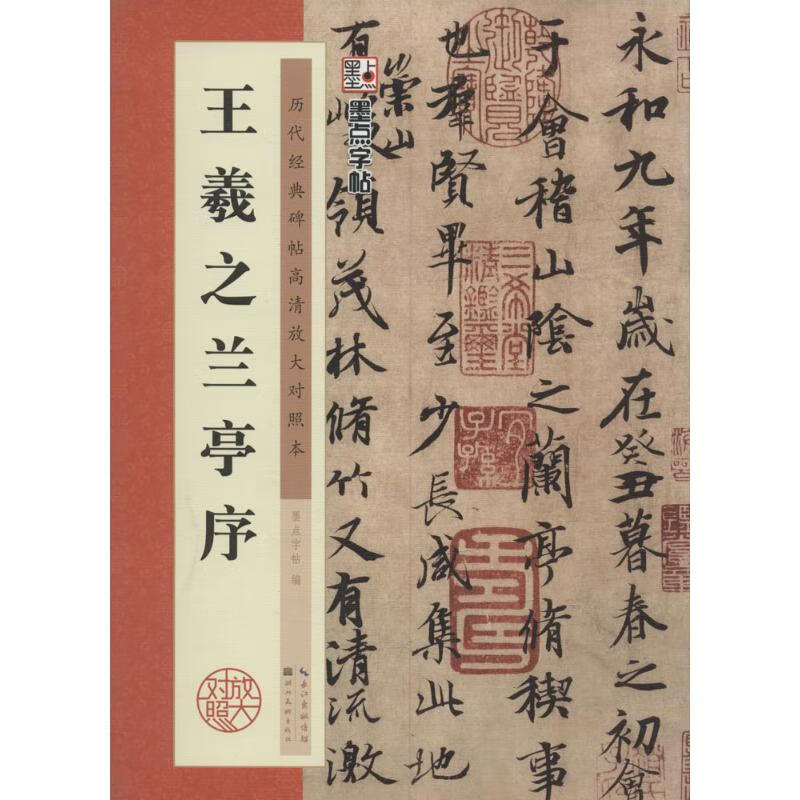 王羲之兰亭序
历代经典碑帖高清放大对照本
墨点字帖 编
长江出版传媒
湖北美术出版社
放大
对照
墨点
墨点字帖
永和九年歲在癸丑暮春之初會
于會稽山陰之蘭亭脩稧事
也羣賢畢至少長咸集此地
有崇山峻領茂林脩竹又有清流激
三希堂
精鑑璽